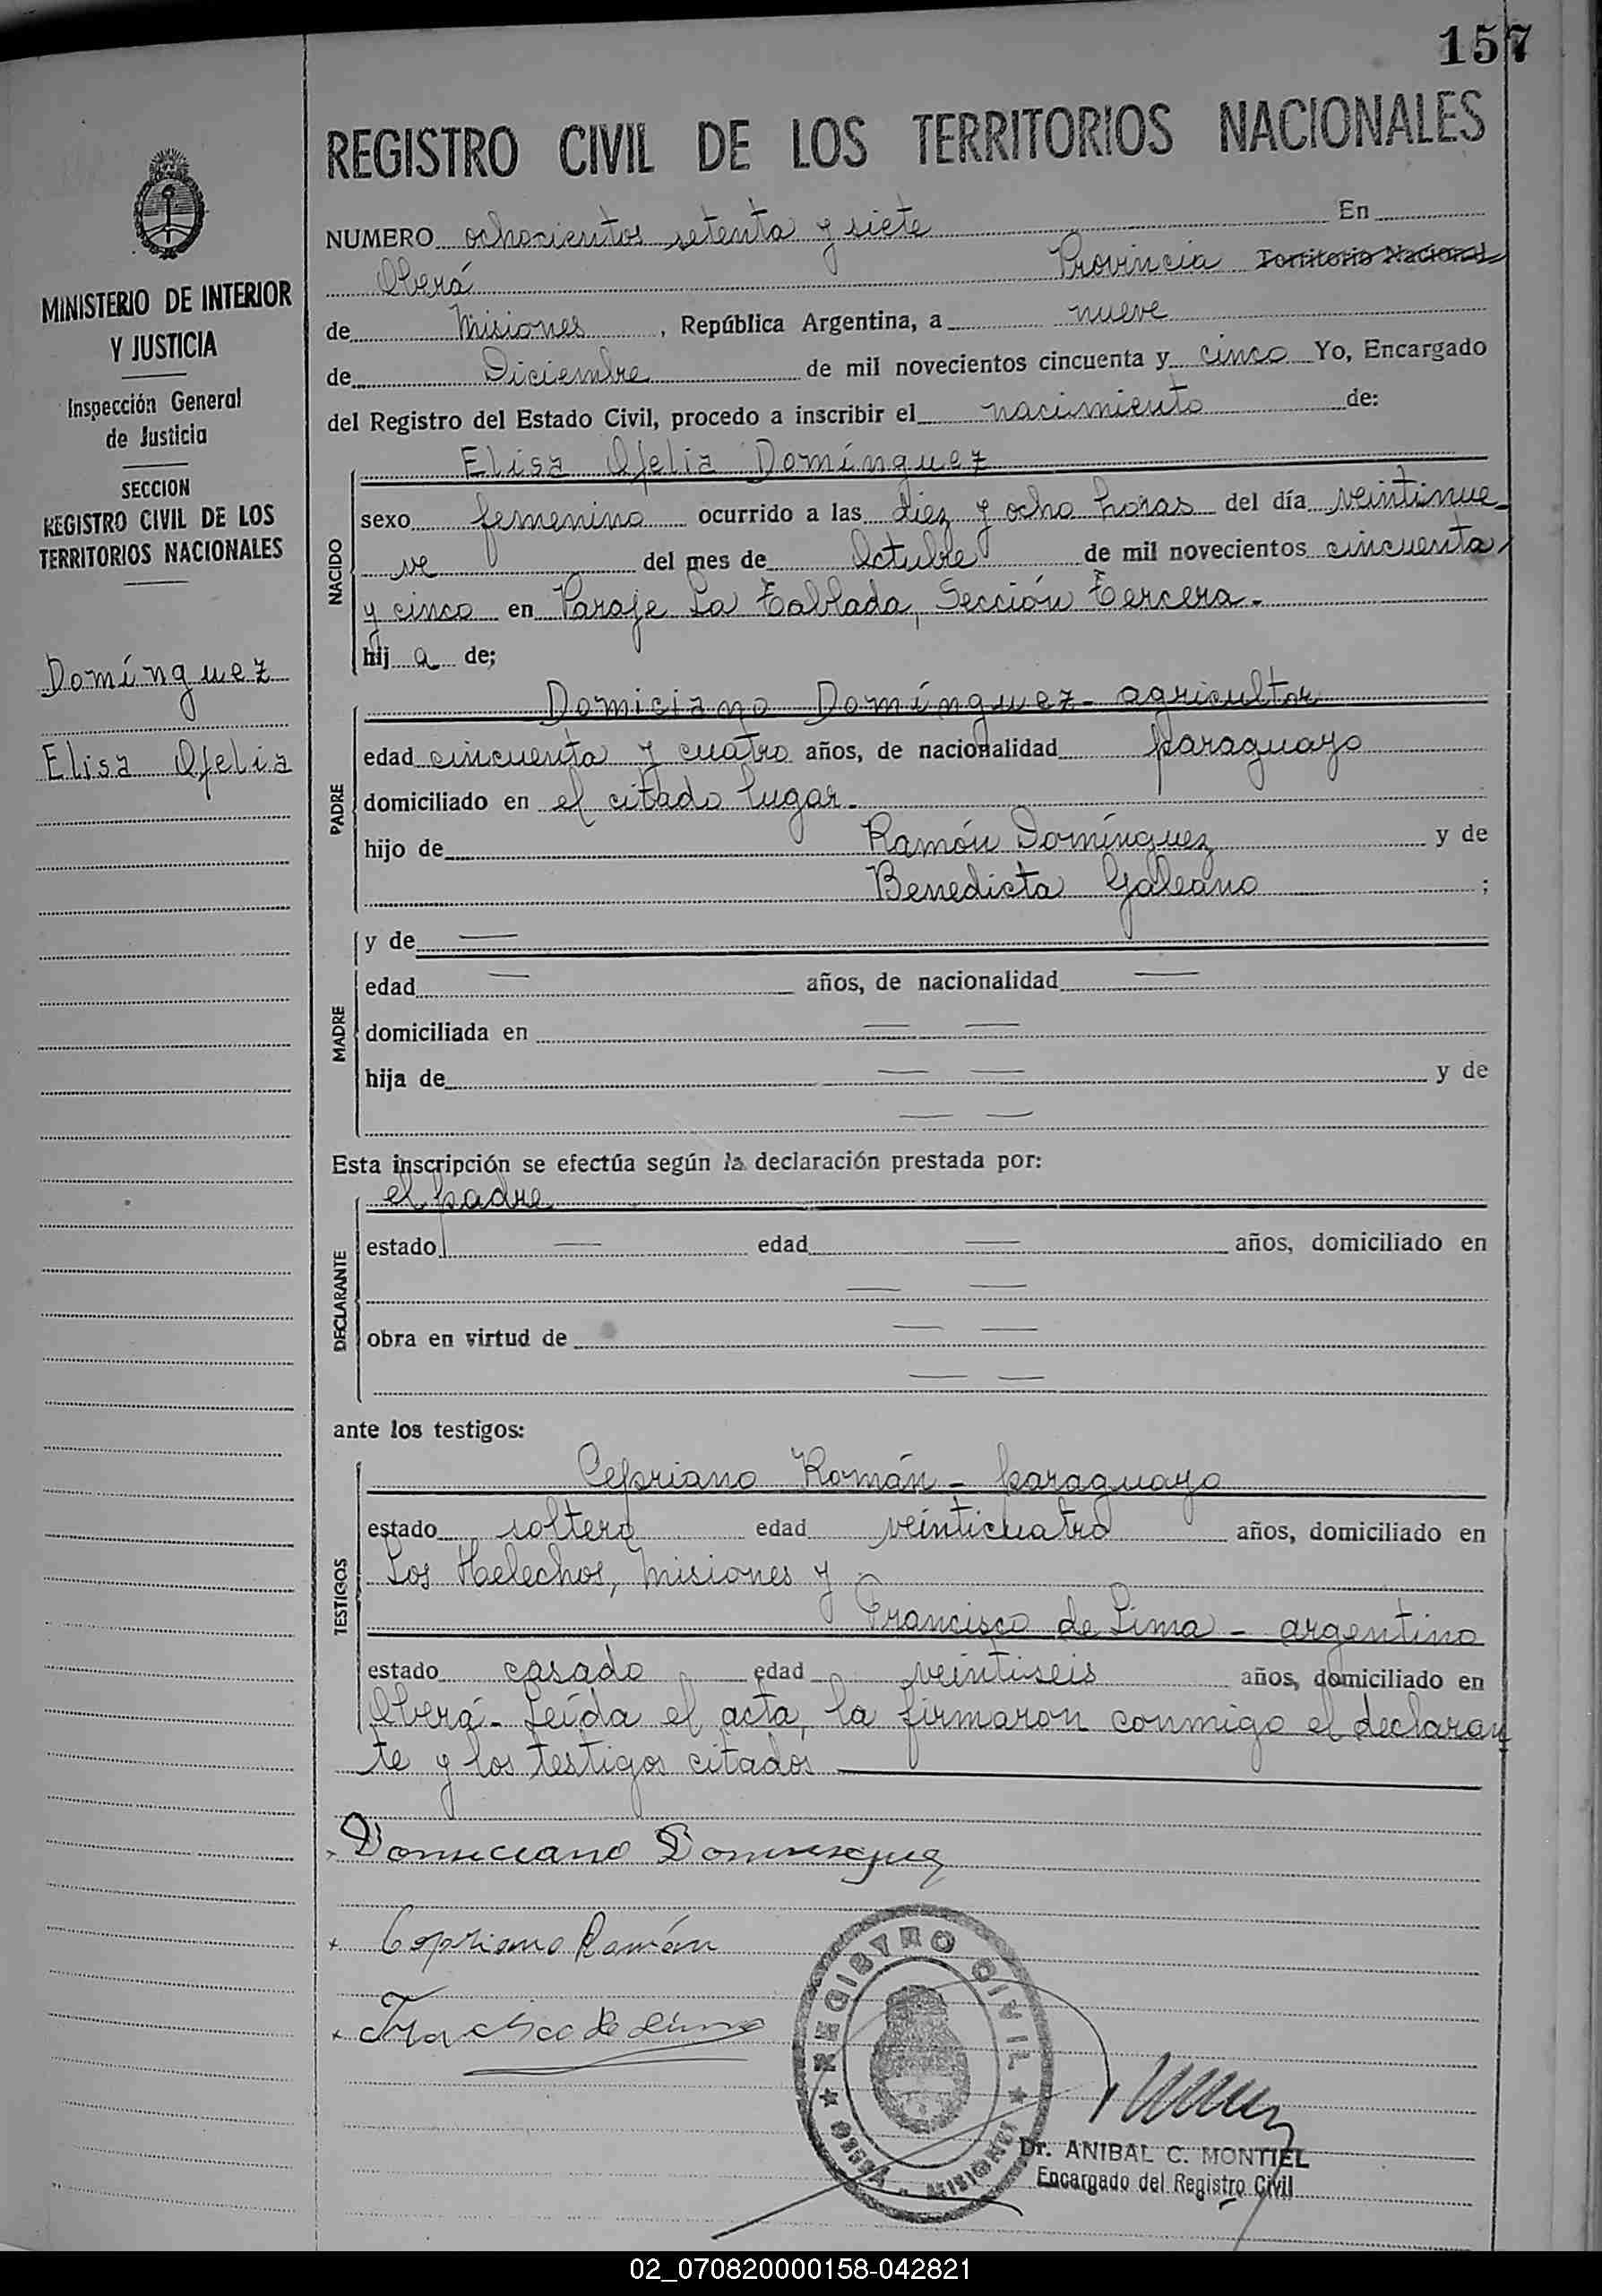 157
REGISTRO CIVIL DE LOS TERRITORIOS NACIONALES
MINISTERIO DE INTERIOR
Y JUSTICIA
Inspección General
de Justicia
SECCION
REGISTRO CIVIL DE LOS
TERRITORIOS NACIONALES
Domínguez
Elisa Ofelia
NUMERO ochocientos setenta y siete En
Oberá Provincia Territorio Nacional
de Misiones, República Argentina, a nueve
de Diciembre de mil novecientos cincuenta y cinco Yo, Encargado
del Registro del Estado Civil, procedo a inscribir el nacimiento de:
NACIDO
Elisa Ofelia Domínguez
sexo femenino ocurrido a las diez y ocho horas del día veintinue-
ve del mes de Octubre de mil novecientos cincuenta
y cinco en Paraje La Tablada, Sección Tercera.-
hij a de;
PADRE
Domiciano Domínguez - agricultor
edad cincuenta y cuatro años, de nacionalidad paraguayo
domiciliado en el citado lugar.-
hijo de Ramón Domínguez y de
Benedicta Galeano ;
MADRE
y de —
edad — años, de nacionalidad —
domiciliada en — —
hija de — — y de
— —
Esta inscripción se efectúa según la declaración prestada por:
DECLARANTE
el padre
estado — edad — años, domiciliado en
— —
obra en virtud de — —
— —
ante los testigos:
TESTIGOS
Cepriano Román - paraguayo
estado soltero edad veinticuatro años, domiciliado en
Los Helechos, Misiones y
Francisco de Lima - argentino
estado casado edad veintiseis años, domiciliado en
Oberá - Leída el acta, la firmaron conmigo el declaran
te y los testigos citados
Domiciano Dominguez
Cepriano Román
Francisco de Lima
REGISTRO CIVIL
OBERA - MISIONES
Dr. ANIBAL C. MONTIEL
Encargado del Registro Civil
02_070820000158-042821